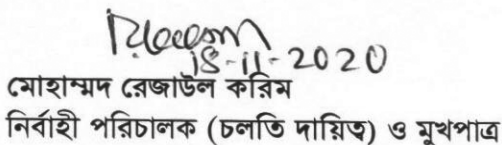 18-11-2020
মোহাম্মদ রেজাউল করিম
নির্বাহী পরিচালক (চলতি দায়িত্ব) ও মুখপাত্র